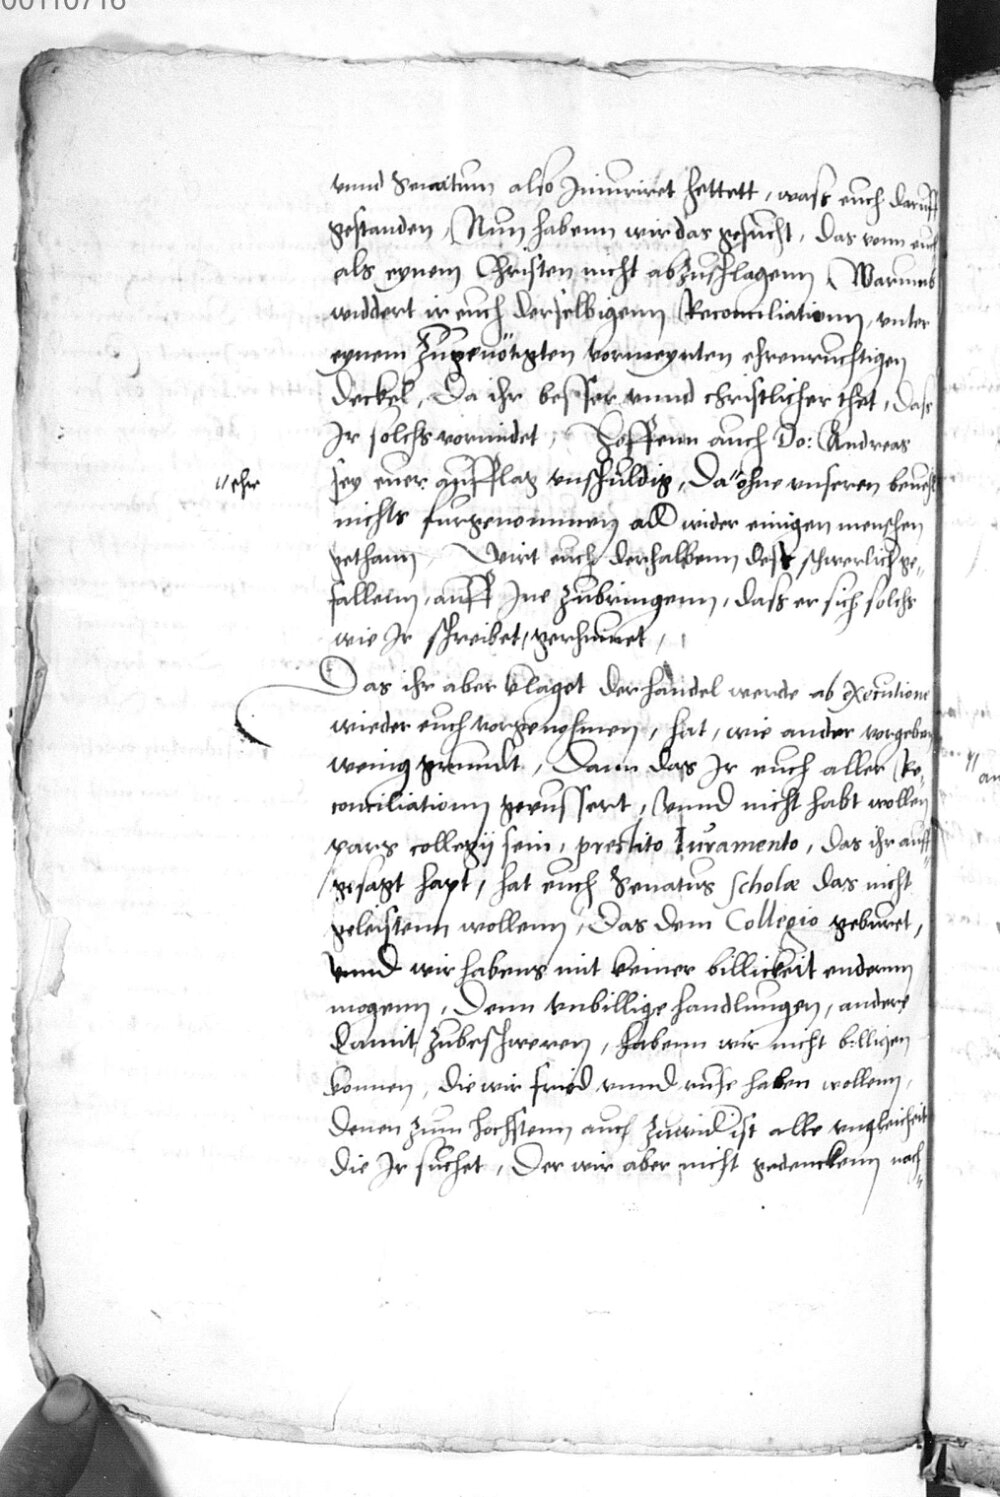 00110716
vnnd Senatum also Iniuriret hettett, wass euch daruff
gestanden, Nun habenn wir das gesucht, das vonn euch
als eynem Christen nicht abzuschlagenn, Warumb
widdert ir euch derselbigenn Reconciliationn, vnter
eynem zugenötigten vormeynten ehrenruchtigen
deckel, Da ihr besser vnnd christlicher thet, dass
Ir solchs vormidet, Hoffenn auch Do: Andreas
sey euer aufflag vnschuldig, Da ohne vnseren
"ehr
nichts furgenommen add wider einigen menschen
gethann, Wirt euch derhalbenn dest schwerlich ge-
fallenn, auff Ine zubringenn, dass er sich solchs
wie Ir schreibet, gerhumet,
Das ihr aber klaget der handel werde ab executione
wieder euch vorgenohmen, hat, wie ander vorgeben
wenig grundt, Dann das Ir euch aller Re-
conciliationn geeussert, vnnd nicht habt wollen
pars collegij sein, prestito Iuramento, das ihr auff-
gesagt hapt, hat euch Senatus scholæ das nicht
geleistenn wollenn, Das dem Collegio geburet,
vnnd wir habens mit keiner billickeit endernn
mogenn, Denn vnbillige handlungen, andere
damit zubeschweren, habenn wir nicht billigen
konnen, die wir fried vnnd ruhe haben wollenn,
denen zum hochstenn auch zuwid ist alle vngleicheit
die Ir suchet, Der wir aber nicht gedenckenn nach-